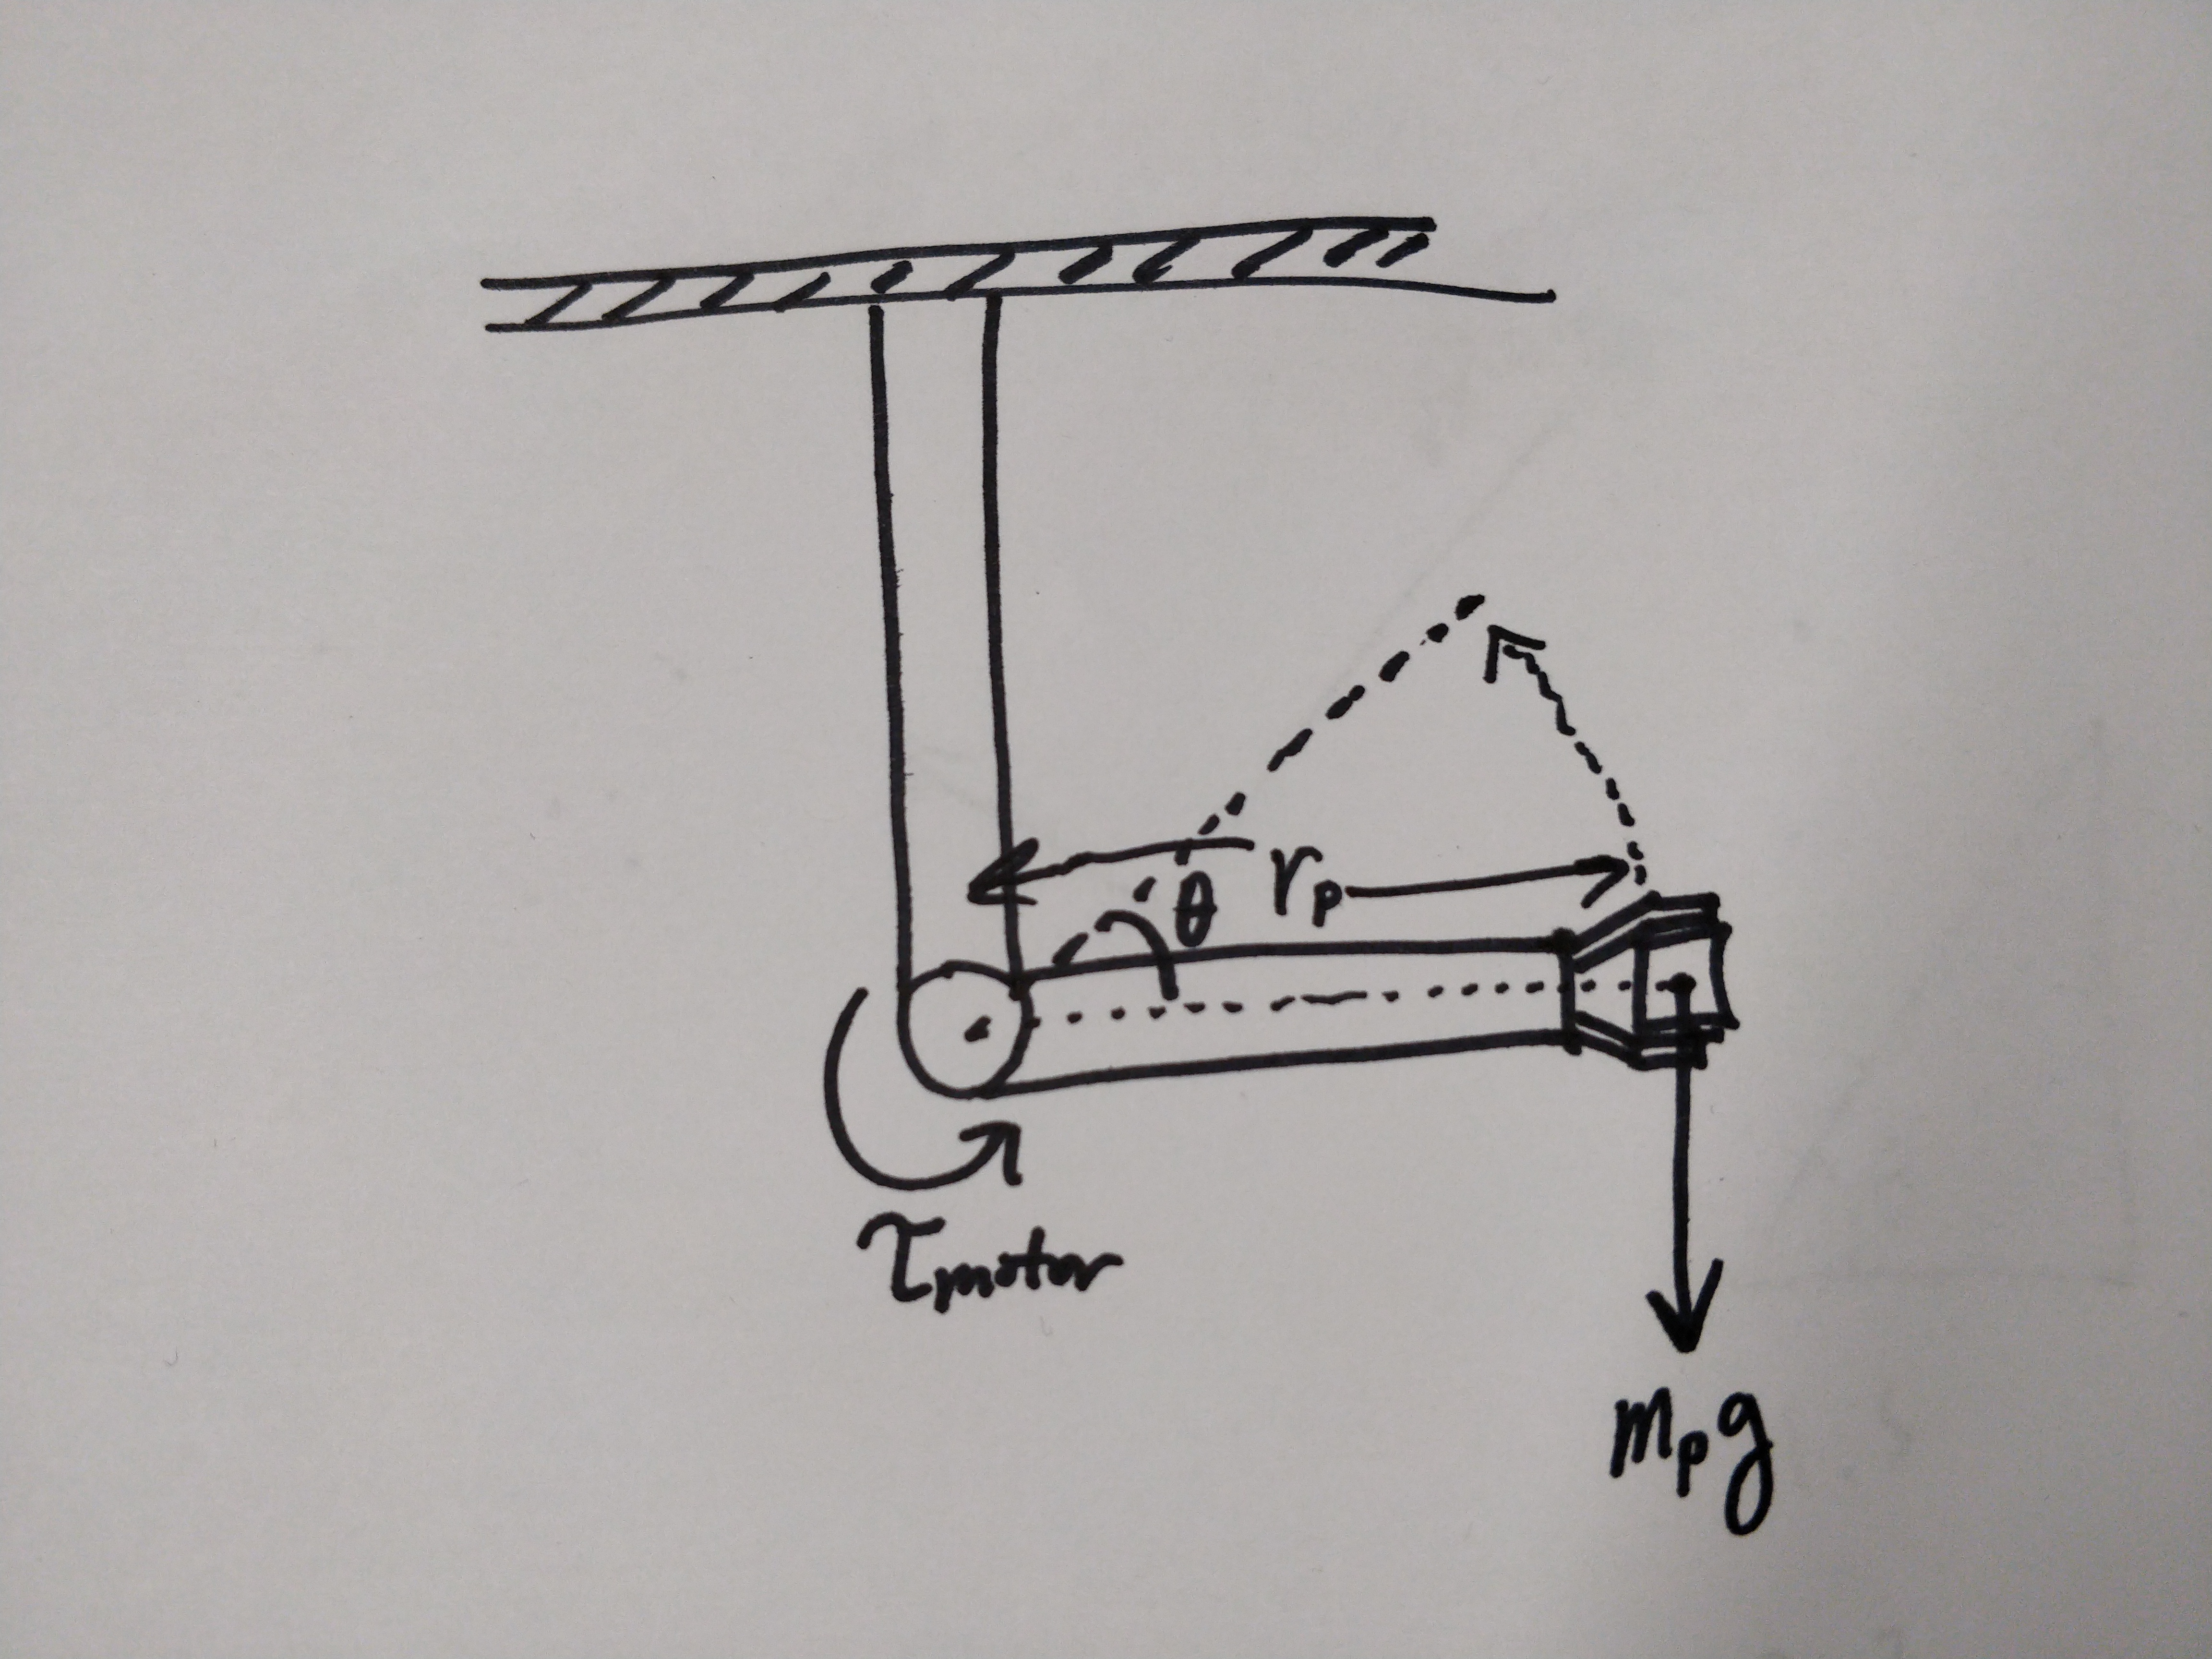 θ
rₚ
τmotor
mₚg